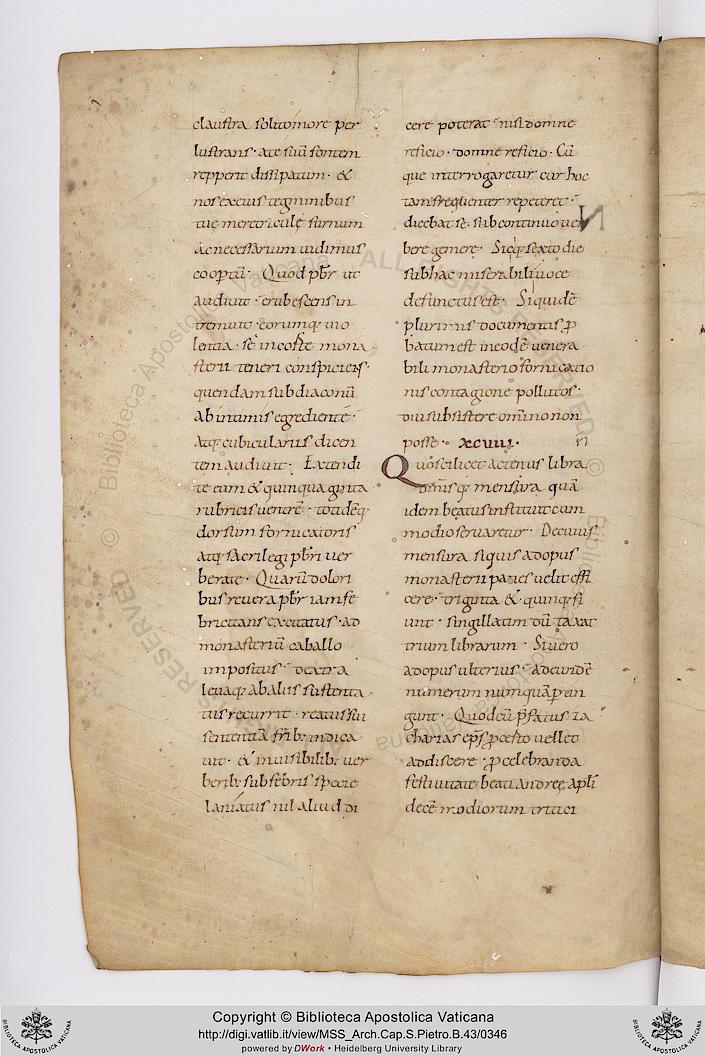 claustra solito more per
lustrans · ate suū fontem
repperit dissipatum · &
nos exuuis tegminibus
tue meretriculę furnum
ac necessarium uidimus
coop̄tū · Quod pb̄r ut
audiuit · erubescens in
tremuit · eorumq; uio
lentia · se in eo
sterii teneri conspiciens ·
quendam subdiaconū
ab intimis egrediente ·
Atq; cubiculariis dicen
tem audiuit · Extendi
te eum & quinquaginta
rubricis uentrē · totidēq;
dorsum fornicatoris
atq; sacrilegi pb̄ri uer
berate · Quarū dolori
bus reuera pb̄r iam fe
bricitans excitatus · ad
monasteriū caballo
impositus · dextra
leuaq; ab aliis sustenta
tus recurrit · reatus sui
sententiā fr̄ib; indica
uit · & inuisibilib; uer
berib; sub febris specie
laniatus nil aliud di
cere poterat · nisi domne
reficio · domne reficio · Cū
que interrogaretur cur hoc
tam frequenter repeteret ·
dicebat se sub continuo uer
bere gemere · Sicq; sexto die
sub hac miserabili uoce
defunctus est · Siquidē
plurimis documentis p̄
batum est in eodē uenera
bili monasterio fornicatio
nis contagione pollutos ·
diu subsistere om̄ino non
posse · xcviiii ·
Quo scilicet actenus libra
mensura quā
idem beatus instituit cum
modio seruaretur · De cuius
mensura siquis ad opus
monasterii panes uelit effi
cere · triginta & quinq; fi
unt · singillatim dū taxat
trium librarum · Si uero
ad opus ulterius · ad eundē
numerum numquā p̄uen
iunt · Quod cū p̄fatus za
charias ep̄s p̄cepto uellet
addiscere · p̄ celebranda
festiuitate beati andreę apl̄i
decē modiorum tritici
N
Copyright © Biblioteca Apostolica Vaticana
http://digi.vatlib.it/view/MSS_Arch.Cap.S.Pietro.B.43/0346
powered by DWork • Heidelberg University Library